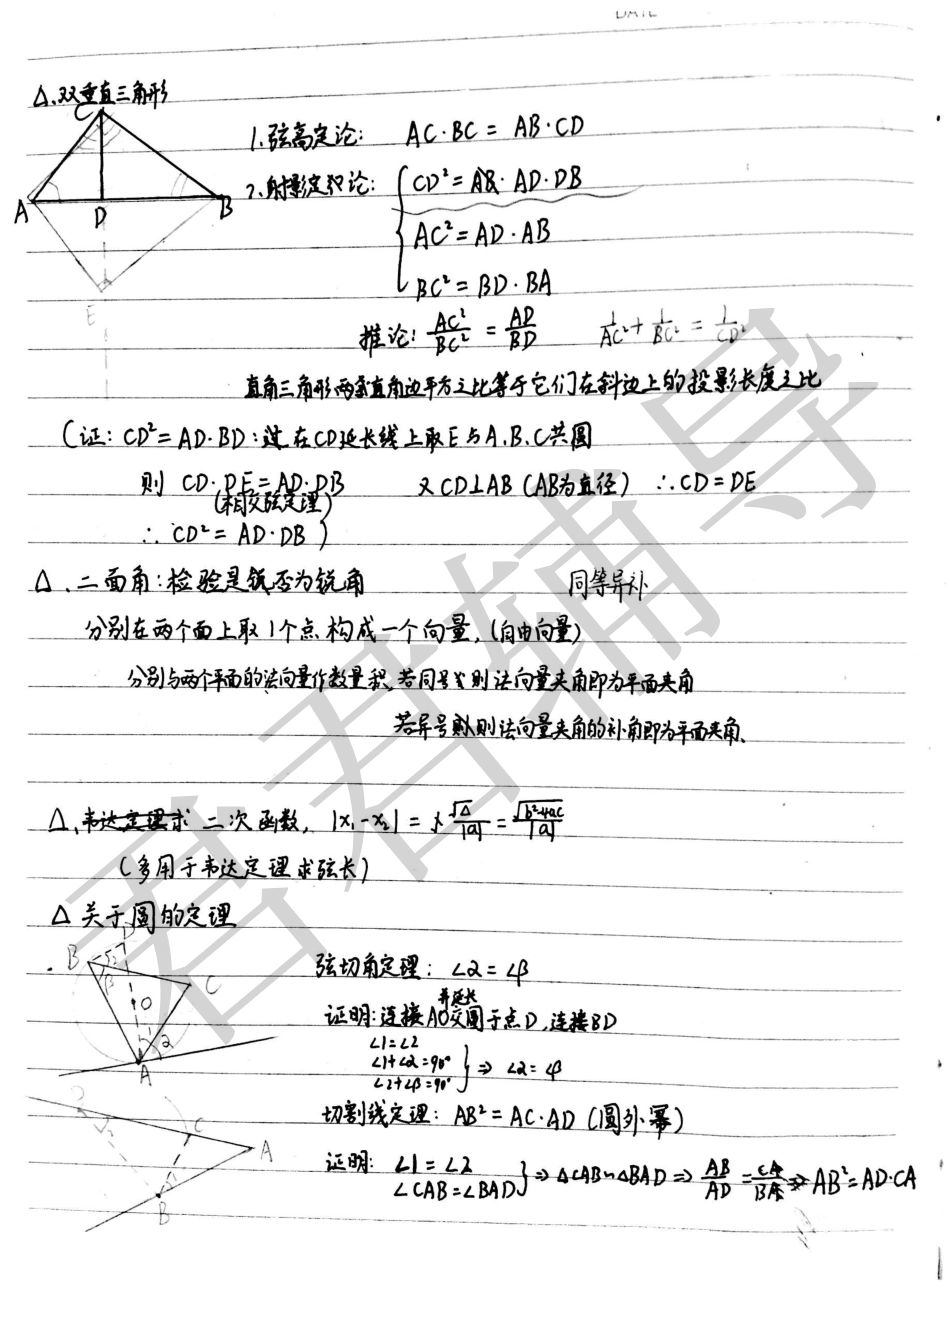 DATE
△. 双垂直三角形
C
A D B
E
1. 弦高定论: AC·BC = AB·CD
2. 射影定论: CD² = AD·DB
AC² = AD·AB
BC² = BD·BA
推论: AC²/BC² = AD/BD 1/AC² + 1/BC² = 1/CD²
直角三角形两直角边平方之比等于它们在斜边上的投影长度之比
(证: CD² = AD·BD: 在CD延长线上取E与A.B.C共圆
则 CD·DE = AD·DB 又CD⊥AB (AB为直径) ∴CD = DE
(相交弦定理)
∴ CD² = AD·DB )
△. 二面角: 检验是否为锐角 同等异补
分别在两个面上取1个点构成一个向量, (自由向量)
分别与两个平面的法向量作数量积, 若同号则法向量夹角即为平面夹角
若异号则法向量夹角的补角即为平面夹角、
△. 韦达定理求 二次函数, |x₁-x₂| = √△/|a| = √b²-4ac/|a|
(多用于韦达定理求弦长)
△ 关于圆的定理
D
B 2
β C
O
1 α
A
弦切角定理: ∠α = ∠β
并延长
证明: 连接AO交圆于点D, 连接BD
∠1=∠2
∠1+∠α=90°
∠2+∠β=90° } ⇒ ∠α = ∠β
切割线定理: AB² = AC·AD (圆外幂)
D
2 C A
1
B
证明: ∠1 = ∠2
∠CAB = ∠BAD } ⇒ △CAB∽△BAD ⇒ AB/AD = CA/BA ⇒ AB² = AD·CA
君君辅导